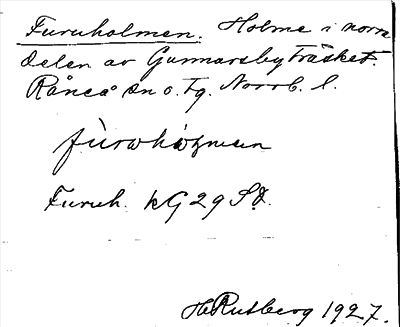 Furuholmen. Holme i norra
delen av Gunnarsbyträsket.
Råneå sn o. tg. Norrb. l.
fùrwhòɫmən
Furuh. kG 29 SO.
H Rutberg 1927.